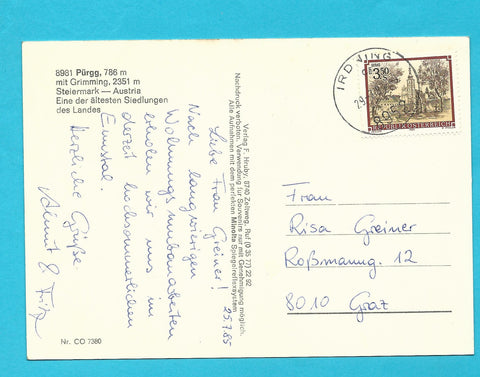 8981 Pürgg, 786 m
mit Grimming, 2351 m
Steiermark — Austria
Eine der ältesten Siedlungen
des Landes
25.7.85
Liebe Frau Greiner!
Nach langwierigen
Wohnungsumbauarbeiten
erholen wir uns im
derzeit hochsommerlichen
Ennstal.
Herzliche Grüße
Almut & Fritz
Nr. CO 7380
Verlag F. Hruby, 8740 Zeltweg, Ruf (0 35 77) 22 92
Nachdruck verboten. Verwendung für Souvenirs nur mit Genehmigung möglich.
Alle Aufnahmen mit dem perfekten Minolta Spiegelreflexsystem
IRDNING
3.50
REPUBLIK ÖSTERREICH
Frau
Risa Greiner
Roßmanng. 12
8010 Graz